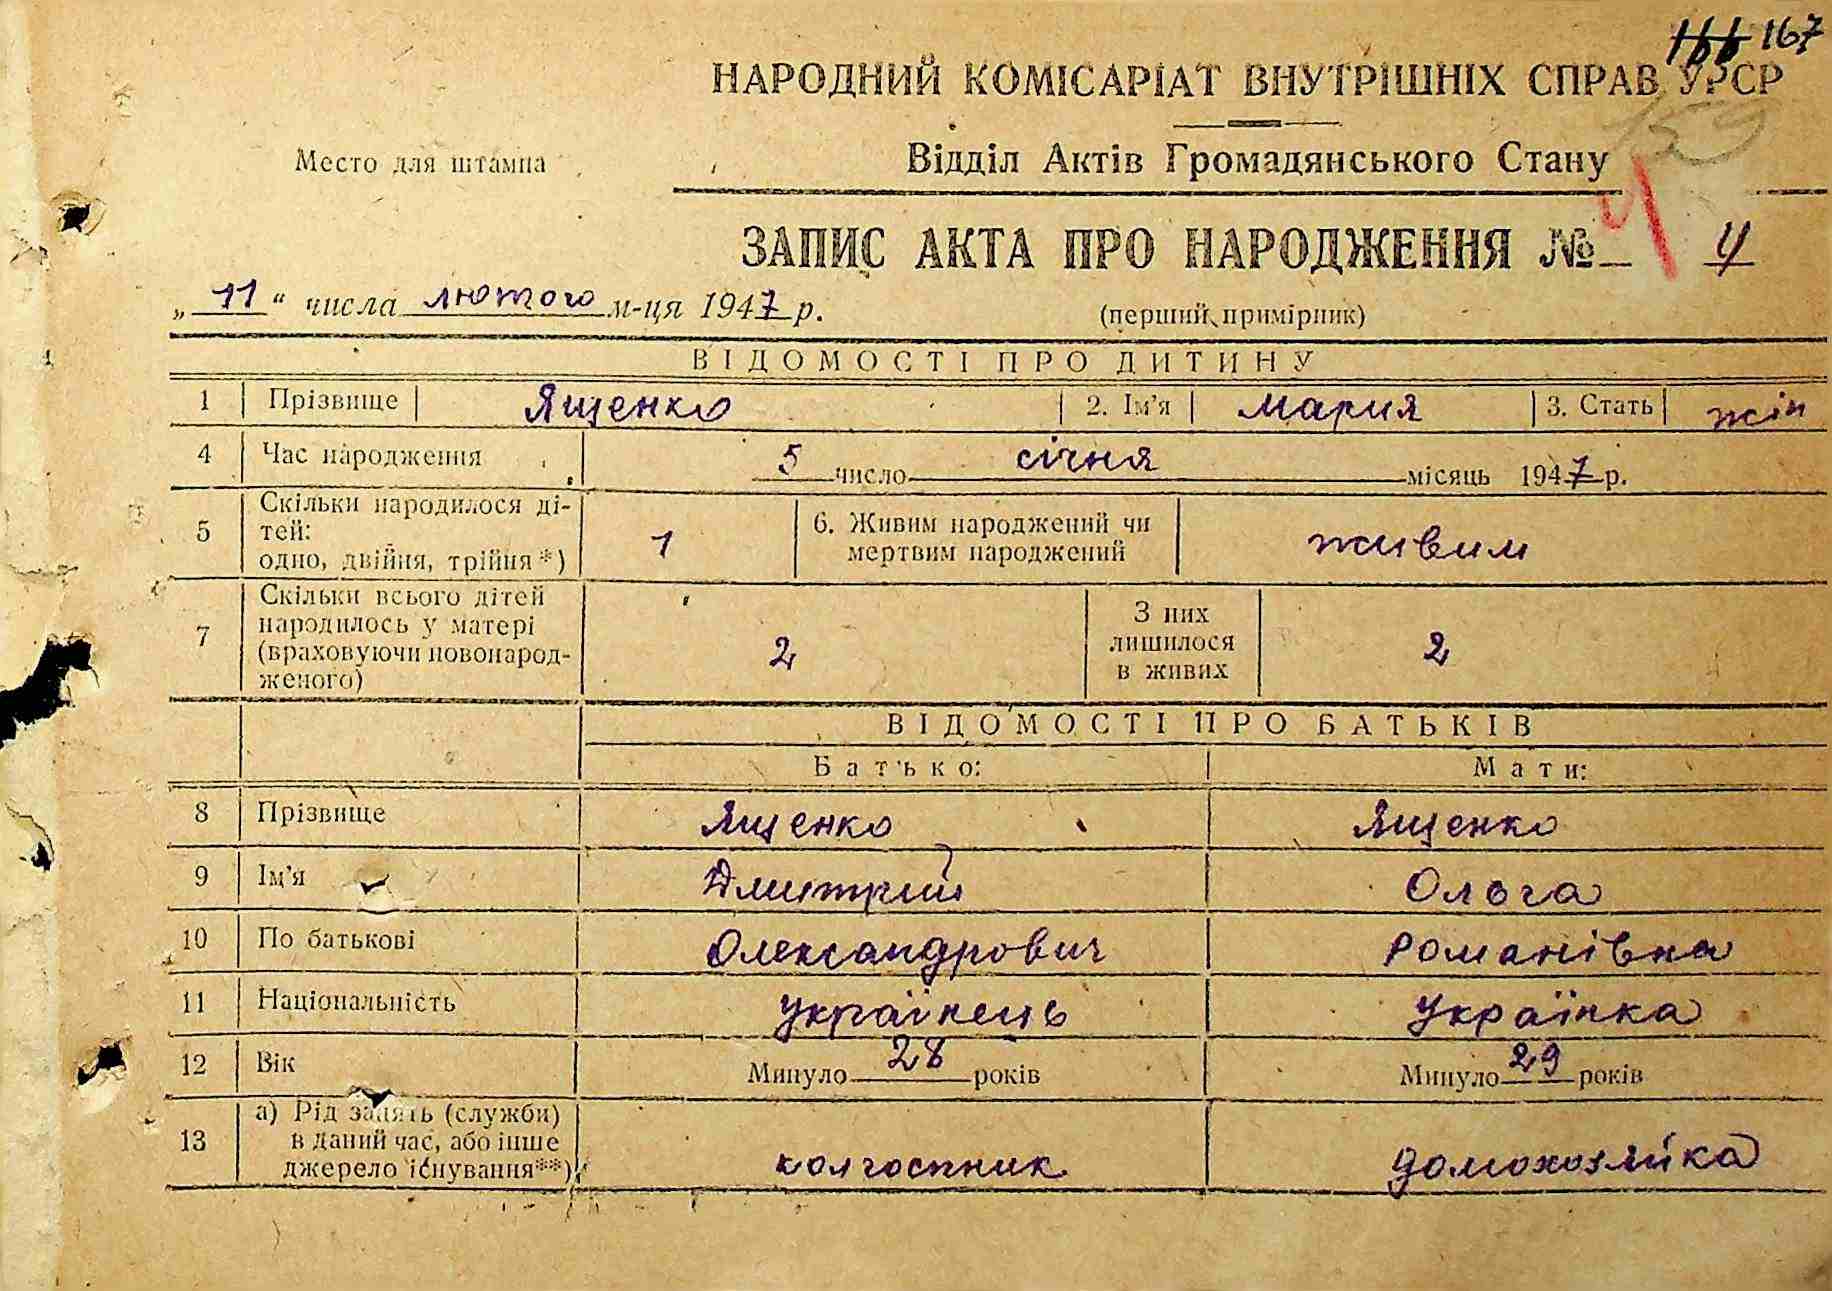 166 167
НАРОДНИЙ КОМІСАРІАТ ВНУТРІШНІХ СПРАВ УРСР
159
Место для штампа
Відділ Актів Громадянського Стану
ЗАПИС АКТА ПРО НАРОДЖЕННЯ № 4
„11“ числа лютого м-ця 1947 р.
(перший примірник)
ВІДОМОСТІ ПРО ДИТИНУ
1 Прізвище Ященко 2. Ім'я Мария 3. Стать жін
4 Час народження 5 число січня місяць 1947 р.
5 Скільки народилося ді-
тей:
одно, двійня, трійня*) 1 6. Живим народжений чи
мертвим народжений живим
7 Скільки всього дітей
народилось у матері
(враховуючи новонарод-
женого) 2 З них
лишилося
в живих 2
ВІДОМОСТІ ПРО БАТЬКІВ
Батько: Мати:
8 Прізвище Ященко Ященко
9 Ім'я Дмитрий Ольга
10 По батькові Олександрович Романівна
11 Національність українець Українка
12 Вік Минуло 28 років Минуло 29 років
13 а) Рід занять (служби)
в даний час, або інше
джерело існування**) колгоспник домохозяйка